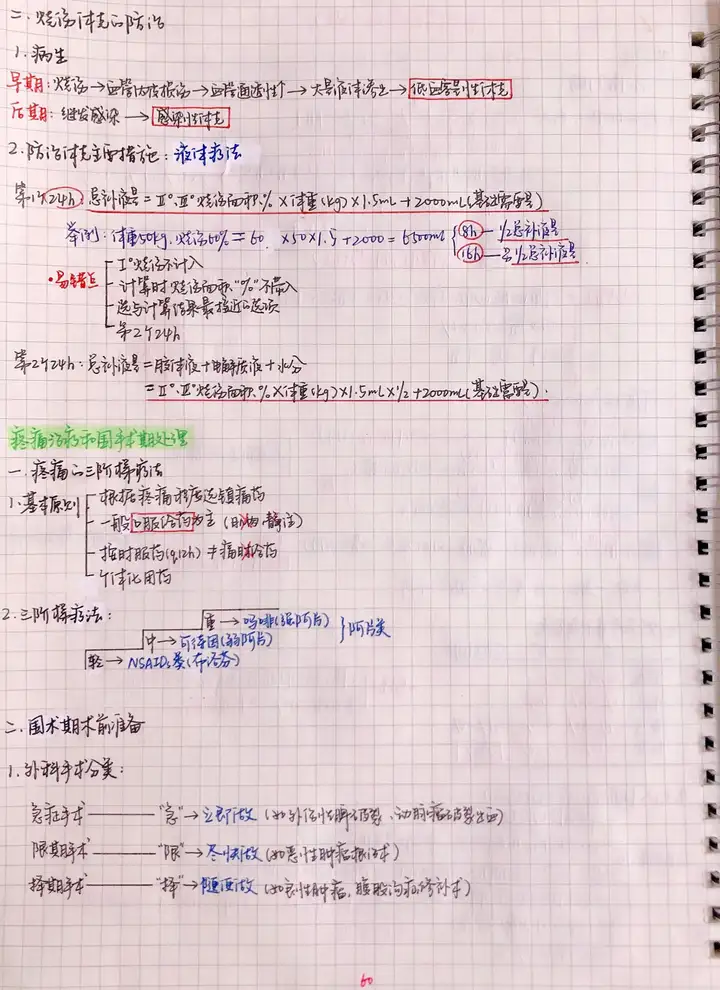 二. 烧伤休克的防治
1. 病生
早期: 烧伤→血管内皮损伤→血管通透性↑→大量液体渗出→低血容量性休克
后期: 继发感染→感染性休克
2. 防治休克主要措施: 液体疗法
第1个24h: 总补液量=Ⅱ°.Ⅲ°烧伤面积.%×体重(kg)×1.5mL+2000mL(基础需要量)
举例: 体重50kg.烧伤60%=60 ×50×1.5+2000=6500ml
8h—1/2总补液量
16h—另1/2总补液量
•易错点
Ⅰ°烧伤不计入
计算时烧伤面积"%"不带入
选与计算结果最接近的选项
第2个24h
第2个24h: 总补液量=胶体液+电解质液+水分
=Ⅱ°.Ⅲ°烧伤面积.%×体重(kg)×1.5mL×1/2+2000mL(基础需要量).
疼痛治疗和围手术期处理
一. 疼痛的三阶梯疗法
1. 基本原则
根据疼痛程度选镇痛药
一般口服给药为主 (静注)
按时服药(q12h)≠痛时给药
个体化用药
2. 三阶梯疗法:
重→吗啡(强阿片)
中→可待因(弱阿片)
阿片类
轻→NSAIDs类(布洛芬)
二. 围术期术前准备
1. 外科手术分类:
急症手术——"急"→立即做 (如外伤性脾破裂、动脉瘤破裂出血)
限期手术——"限"→尽快做 (如恶性肿瘤根治术)
择期手术——"择"→随便做 (如良性肿瘤、腹股沟疝修补术)
60